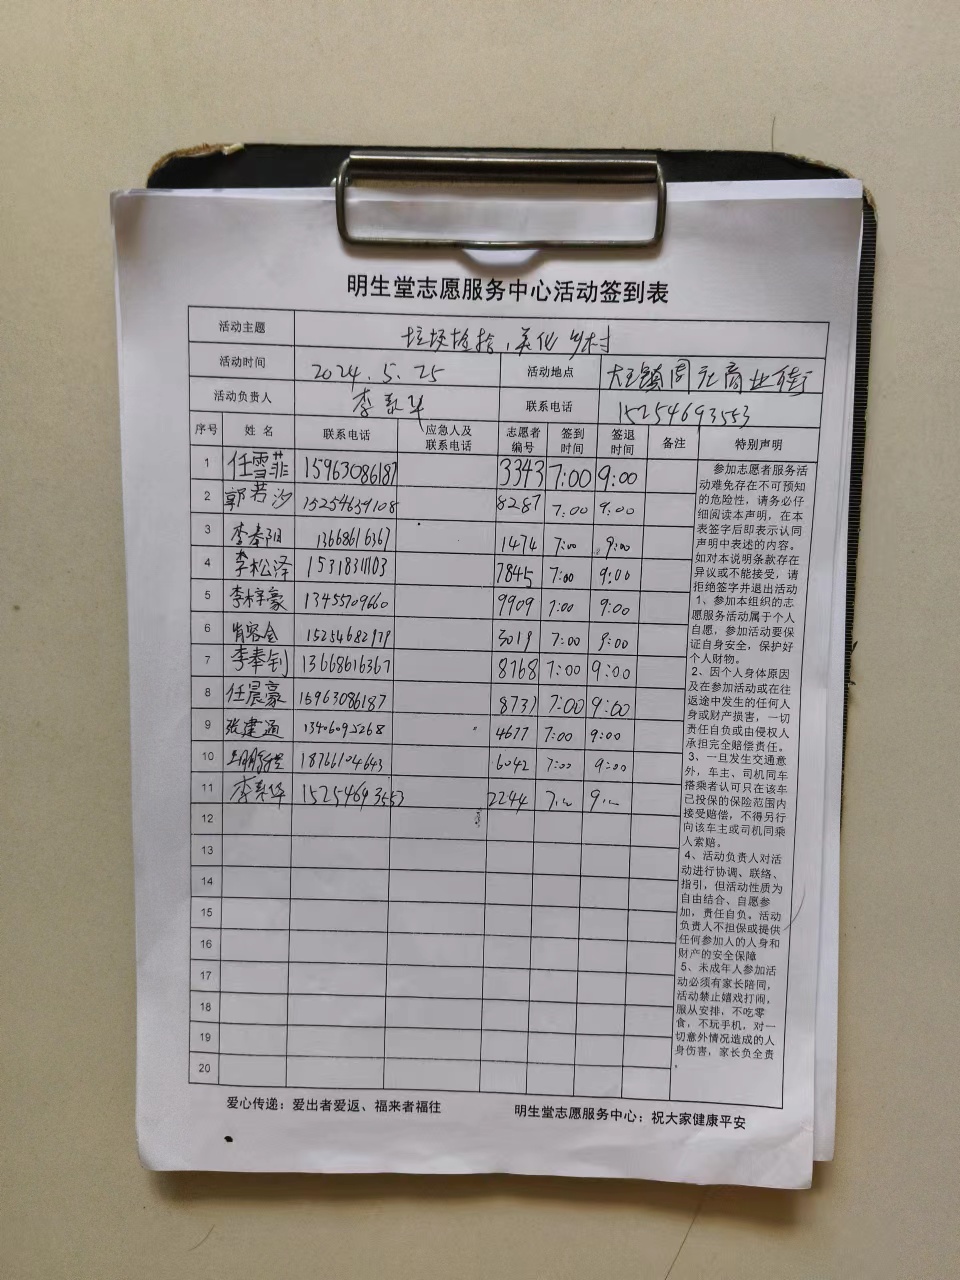 明生堂志愿服务中心活动签到表
活动主题 垃圾捡拾，美化乡村
活动时间 2024.5.25 活动地点 大王镇周社商业街
活动负责人 李 华 联系电话 15254693553
序号 姓名 联系电话 应急人及联系电话 志愿者编号 签到时间 签退时间 备注 特别声明
1 任雪菲 15963086187 3343 7:00 9:00
2 郭若汐 15254659108 8287 7:00 9:00
3 李奉阳 13668616367 1474 7:00 9:00
4 李松泽 15318311103 7845 7:00 9:00
5 李梓豪 13455709660 9909 7:00 9:00
6 15254682979 3019 7:00 9:00
7 李奉钊 13668616367 8768 7:00 9:00
8 任晨豪 15963086187 8731 7:00 9:00
9 张建通 13406095268 4677 7:00 9:00
10 18766104643 6042 7:00 9:00
11 李 华 15254693553 2244 7: 9:
12
13
14
15
16
17
18
19
20
参加志愿者服务活
动难免存在不可预知
的危险性，请务必仔
细阅读本声明，在本
表签字后即表示认同
声明中表述的内容。
如对本说明条款存在
异议或不能接受，请
拒绝签字并退出活动
1、参加本组织的志
愿服务活动属于个人
自愿，参加活动要保
证自身安全，保护好
个人财物。
2、因个人身体原因
及在参加活动或在往
返途中发生的任何人
身或财产损害，一切
责任自负或由侵权人
承担完全赔偿责任。
3、一旦发生交通意
外，车主、司机同车
搭乘者认可只在该车
已投保的保险范围内
接受赔偿，不得另行
向该车主或司机同乘
人索赔。
4、活动负责人对活
动进行协调、联络、
指引，但活动性质为
自由结合、自愿参
加，责任自负。活动
负责人不担保或提供
任何参加人的人身和
财产的安全保障
5、未成年人参加活
动必须有家长陪同，
活动禁止嬉戏打闹，
服从安排，不吃零
食，不玩手机，对一
切意外情况造成的人
身伤害，家长负全责
。
爱心传递：爱出者爱返、福来者福往 明生堂志愿服务中心：祝大家健康平安